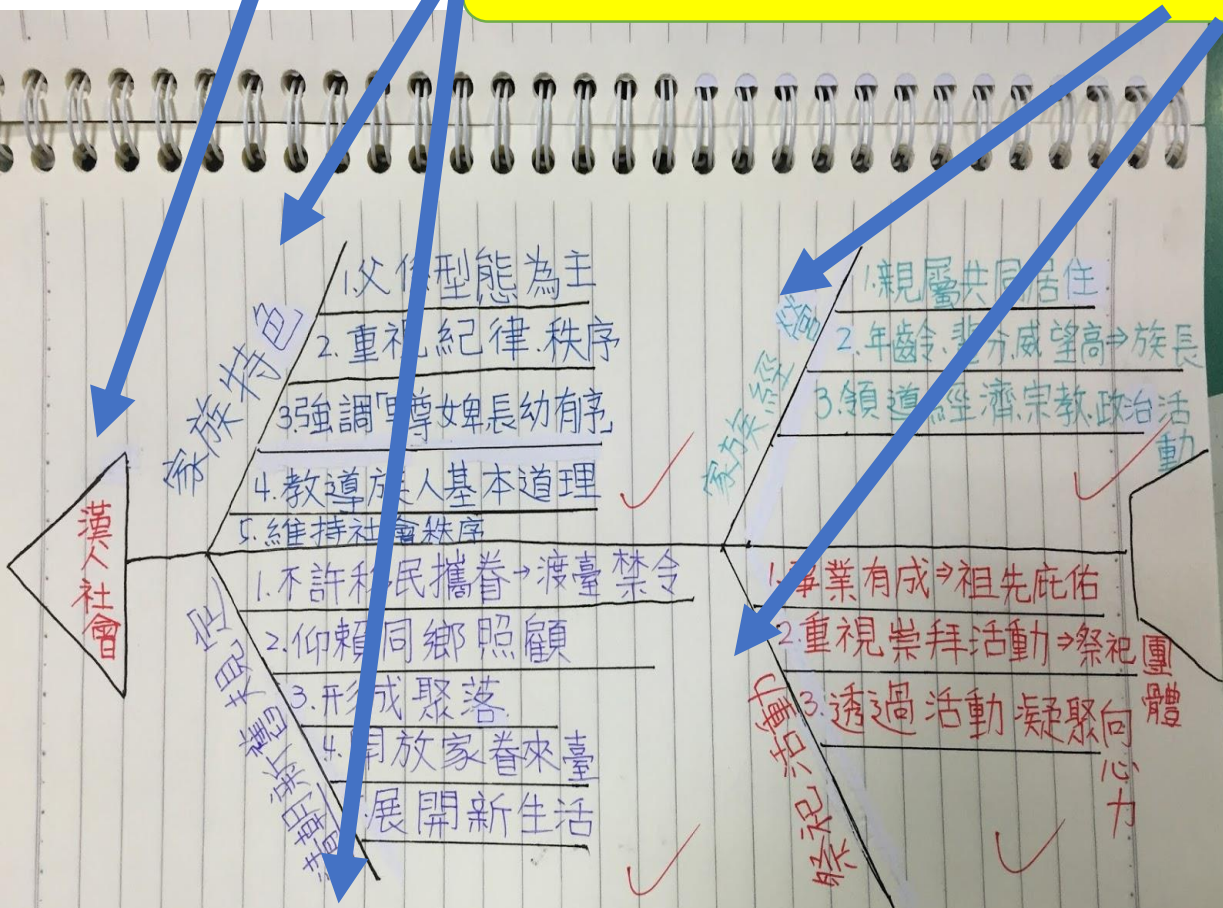 漢人社會
家族特色
1.父係型態為主
2.重視紀律.秩序
3.強調 長幼有序
4.教導族人基本道理
5.維持社會秩序
規定
1.不許移民攜眷→渡臺禁令
2.仰賴同鄉照顧
3.形成聚落
4.開放家眷來臺
展開新生活
家族經營
1.親屬共同居住
2.年齡.輩分.威望高⇒族長
3.領導經濟.宗教.政治活動
祭祀活動
1.事業有成⇒祖先庇佑
2.重視崇拜活動⇒祭祀團體
3.透過活動凝聚向心力